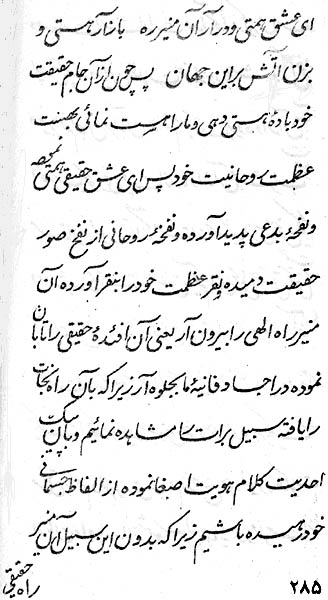 ای عشق همتی و درآر آن منیر ره بازنار هستی و
بزن آتش بر این جهان پس چون از آن جام حقیقت
خود باده هستی دهی و ما را هست نمائی بهینت
عظمت روحانیت خود پس ای عشق حقیقی همتی
و نفخهٔ بدعی پدید آورده و نفخهٔ روحانی از نفخ صور
حقیقت دمیده بنقر عظمت خود را بنقر آورده آن
منیر راه الهی را بیرون آر یعنی آن افئدهٔ حقیقی را تابان
نموده در اجساد فانیهٔ ما بجلوه آر زیرا که بآن راه نجات
را یافته سبیل برائت را مشاهده نمائیم و بآن
احدیت کلام هویت اصغا نموده از الفاظ جسمانی
خود رهیده باشیم زیرا که بدون این سبیل آن منیر
راه حقیقی
۲۸۵